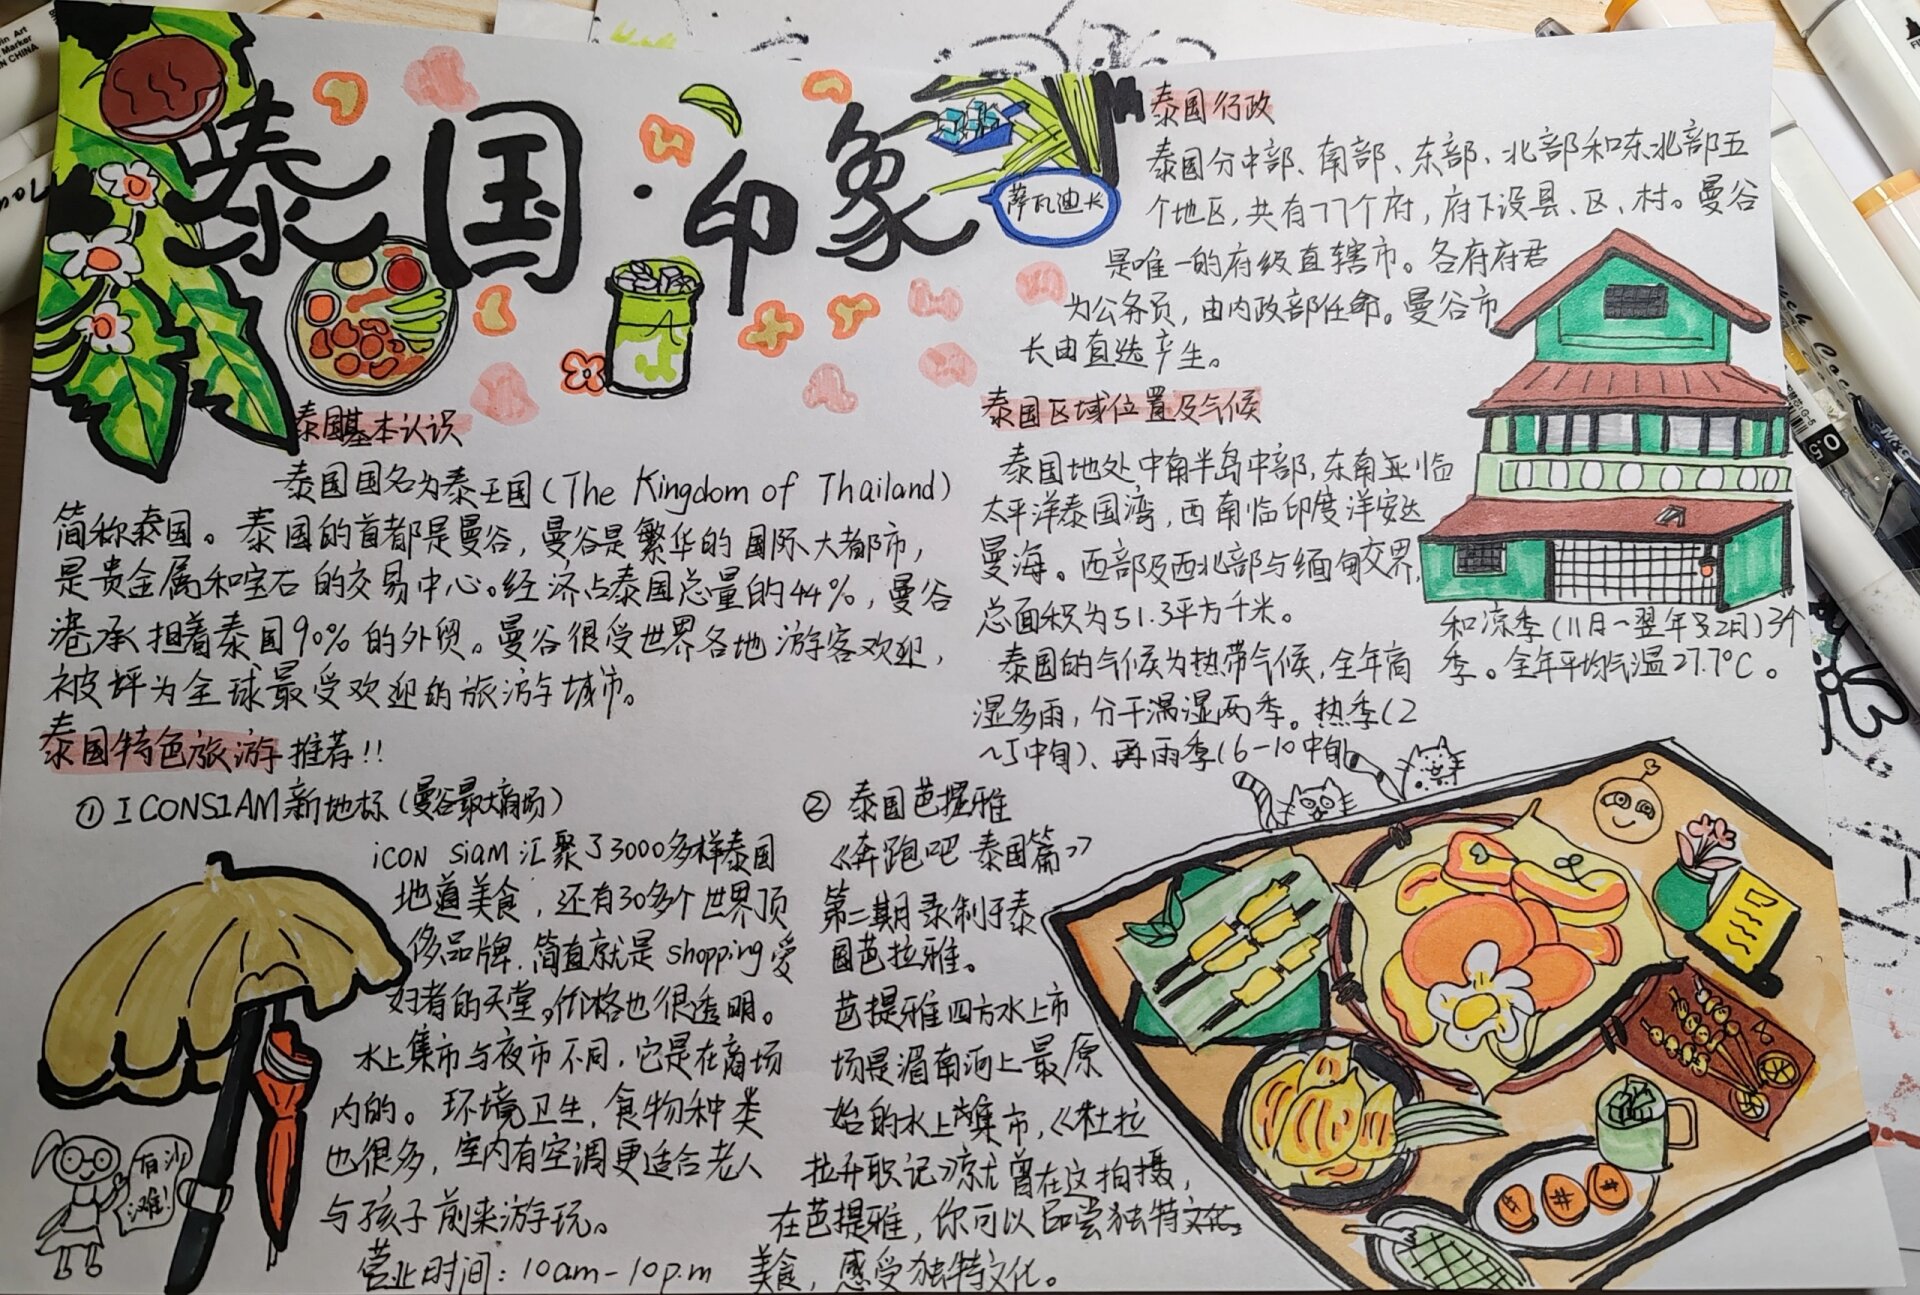 泰国·印象
萨瓦迪卡
泰国基本认识
泰国国名为泰王国(The Kingdom of Thailand)
简称泰国。泰国的首都是曼谷,曼谷是繁华的国际大都市,
是贵金属和宝石的交易中心。经济占泰国总量的44%,曼谷
港承担着泰国90%的外贸。曼谷很受世界各地游客欢迎,
被评为全球最受欢迎的旅游城市。
泰国特色旅游推荐!!
① ICONSIAM新地标(曼谷最大商场)
icon siam汇聚了3000多样泰国
地道美食,还有30多个世界顶
侈品牌.简直就是shopping爱
好者的天堂。价格也很透明。
水上集市与夜市不同,它是在商场
内的。环境卫生,食物种类
也很多,室内有空调更适合老人
与孩子前来游玩。
营业时间:10am-10p.m
有沙
滩!
② 泰国芭提雅
《奔跑吧 泰国篇》
第二期录制于泰
国芭拉雅。
芭提雅四方水上市
场是湄南河上最原
始的水上集市,《杜拉
拉升职记》就曾在这拍摄,
在芭提雅,你可以品尝独特文化。
美食,感受独特文化。
泰国行政
泰国分中部、南部、东部、北部和东北部五
个地区,共有77个府,府下设县、区、村。曼谷
是唯一的府级直辖市。各府府君
为公务员,由内政部任命。曼谷市
长由直选产生。
泰国区域位置及气候
泰国地处中南半岛中部,东南亚临
太平洋泰国湾,西南临印度洋安达
曼海。西部及西北部与缅甸交界,
总面积为51.3平方千米。
泰国的气候为热带气候,全年高
湿多雨,分干湿两季。热季(2
~5中旬)、再雨季(6-10中旬
和凉季(11月-翌年2月)3个
季。全年平均气温27.7°C。
0.5